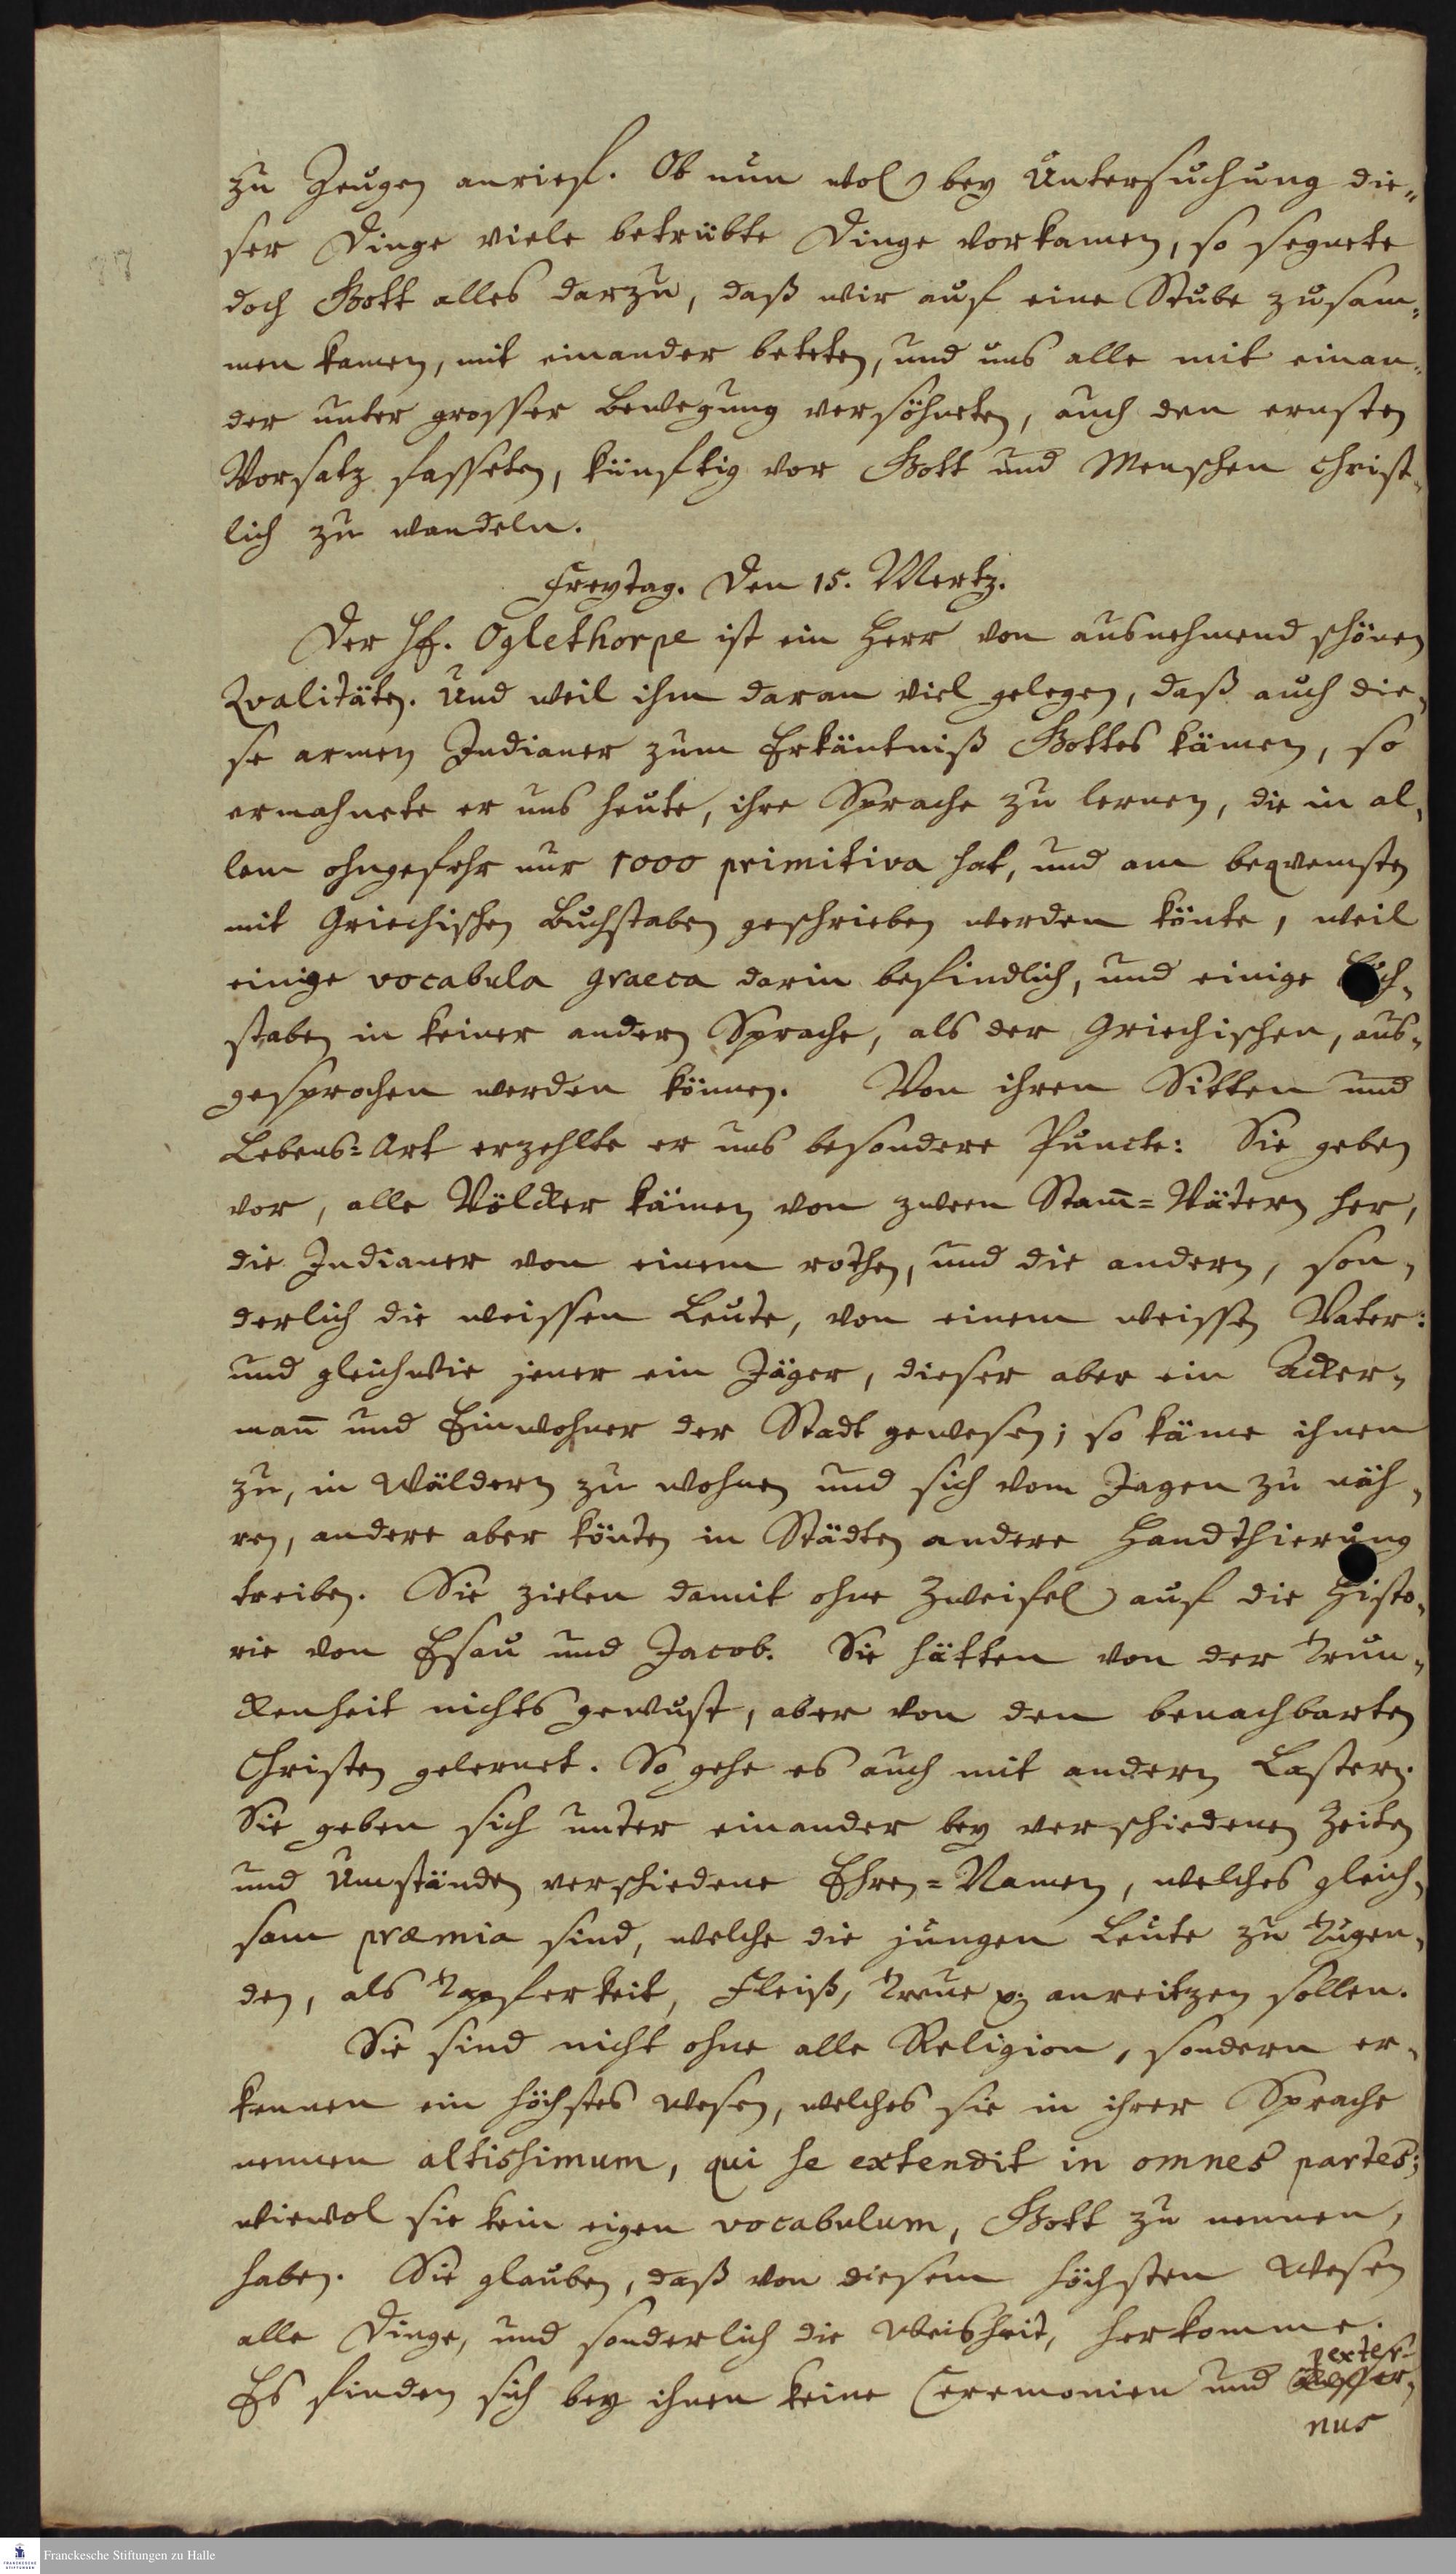 zu Zeugen anrief. Ob nun wol bey Untersuchung die„
ser Dinge viele betrübte Dinge vorkamen, so segnete
doch Gott alles darzu, daß wir auf eine Stube zusam„
men kamen, mit einander beteten, und uns alle mit einan„
der unter grosser Bewegung versöhneten, auch den ernsten
Vorsatz fasseten, künftig vor Gott und Menschen Christ„
lich zu wandeln.
Freytag. Den 15. Mertz.
Der H. Oglethorpe ist ein Herr von ausnehmend schönen
Qvalitäten. Und weil ihm daran viel gelegen, daß auch die„
se armen Indianer zum Erkäntniß Gottes kämen, so
ermahnete er uns heute, ihre Sprache zu lernen, die in al„
lem ohngefehr nur 1000 primitiva hat, und am beqvemsten
mit Griechischen Buchstaben geschrieben werden könte, weil
einige vocabula graeca darin befindlich, und einige Buch„
staben in keiner andern Sprache, als der Griechischen, aus„
gesprochen werden können. Von ihren Sitten und
Lebens=Art erzehlte er uns besondere Puncte: Sie geben
vor, alle Völcker kämen von zween Stam̄=Vätern her,
die Indianer von einem rothen, und die andern, son„
derlich die weissen Leute, von einem weissen Vater:
und gleichwie jener ein Jäger, dieser aber ein Acker„
man̄ und Einwohner der Stadt gewesen; so käme ihnen
zu, in Wäldern zu wohnen und sich vom Jagen zu näh„
ren, andere aber könten in Städten andere Handthierung
treiben. Sie zielen damit ohne Zweifel auf die Histo„
rie von Esau und Jacob. Sie hätten von der Trun„
ckenheit nichts gewust, aber von den benachbarten
Christen gelernet. So gehe es auch mit andern Lastern.
Sie geben sich unter einander bey verschiedenen Zeiten
und Umständen verschiedene Ehren=Namen, welches gleich„
sam præmia sind, welche die jungen Leute zu Tugen„
den, als Tapferkeit, Fleiß, Treue p. anreitzen sollen.
Sie sind nicht ohne alle Religion, sondern er„
kennen ein höchstes Wesen, welches sie in ihrer Sprache
nennen altissimum, qui se extendit in omnes partes;
wiewol sie kein eigen vocabulum, Gott zu nennen,
haben. Sie glauben, daß von diesem höchsten Wesen
alle Dinge, und sonderlich die Weisheit, herkomme.
Es finden sich bey ihnen keine Ceremonien und exter-
nus
Franckesche Stiftungen zu Halle